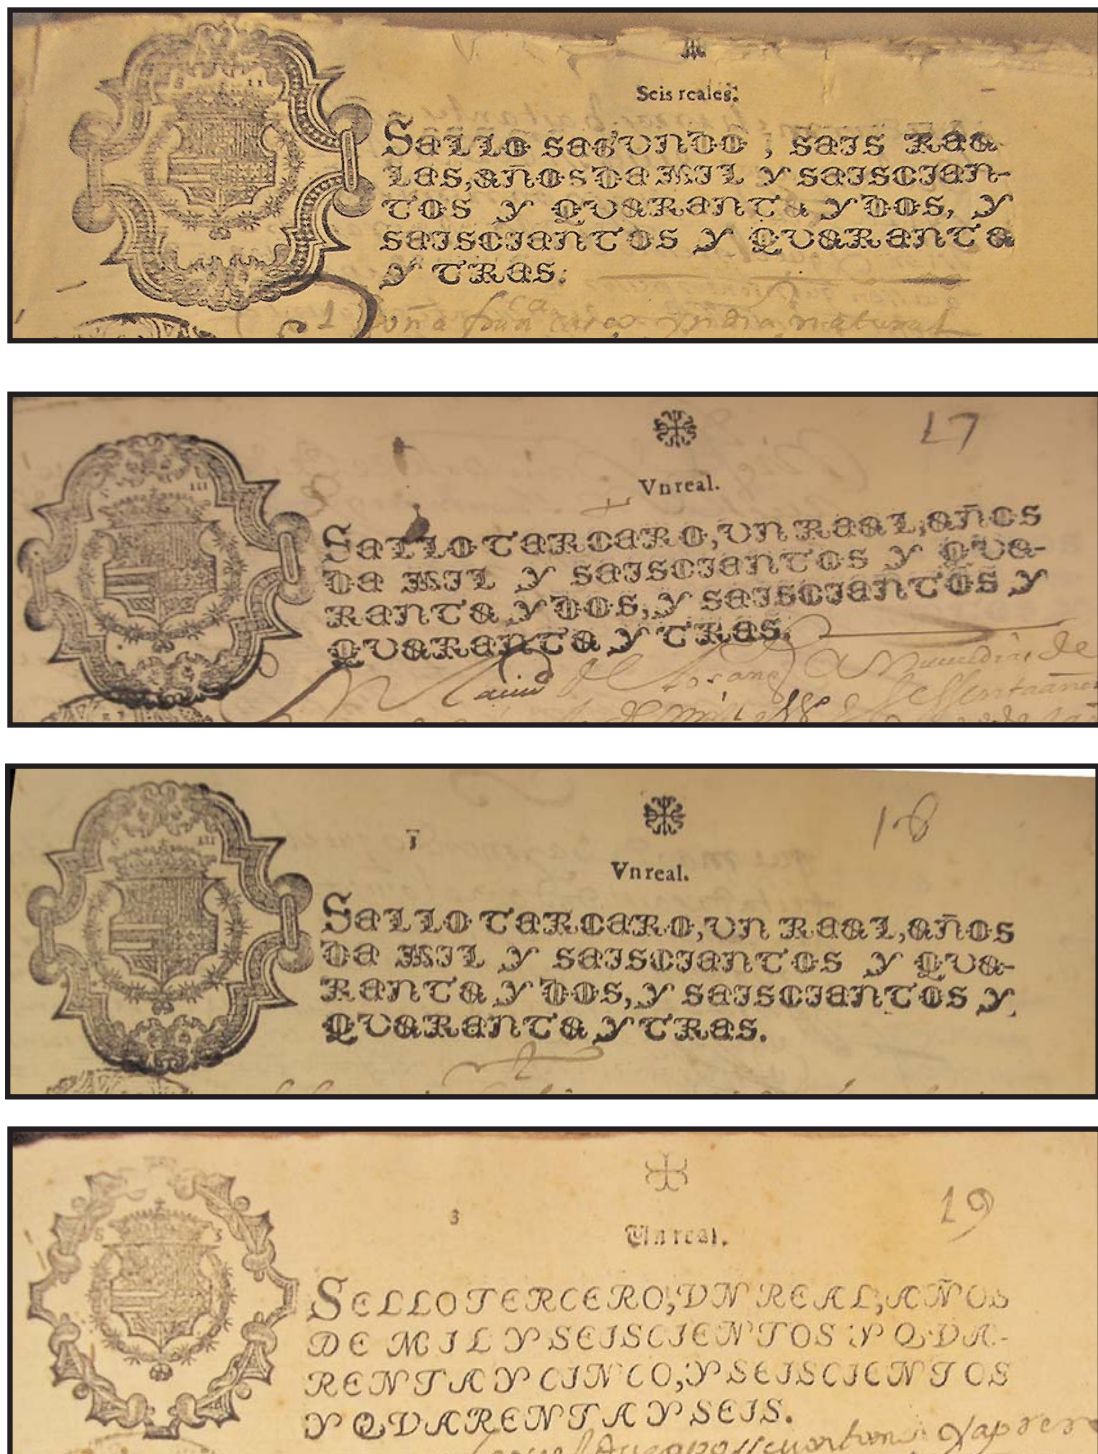 Seis reales.
SELLO SEGUNDO, SEIS REA-
LES, AÑOS DE MIL Y SEISCIEN-
TOS Y QUARENTA Y DOS, Y
SEISCIENTOS Y QUARENTA
Y TRES.
yndia natural
17
III
Vn real.
SELLO TERCERO, UN REAL, AÑOS
DE MIL Y SEISCIENTOS Y QUA-
RENTA Y DOS, Y SEISCIENTOS Y
QUARENTA Y TRES.
18
III
Vn real.
SELLO TERCERO, UN REAL, AÑOS
DE MIL Y SEISCIENTOS Y QUA-
RENTA Y DOS, Y SEISCIENTOS Y
QUARENTA Y TRES.
19
3
S 3
Un real.
SELLO TERCERO, VN REAL, AÑOS
DE MIL Y SEISCIENTOS Y QVA-
RENTA Y CINCO, Y SEISCIENTOS
Y QVARENTA Y SEIS.